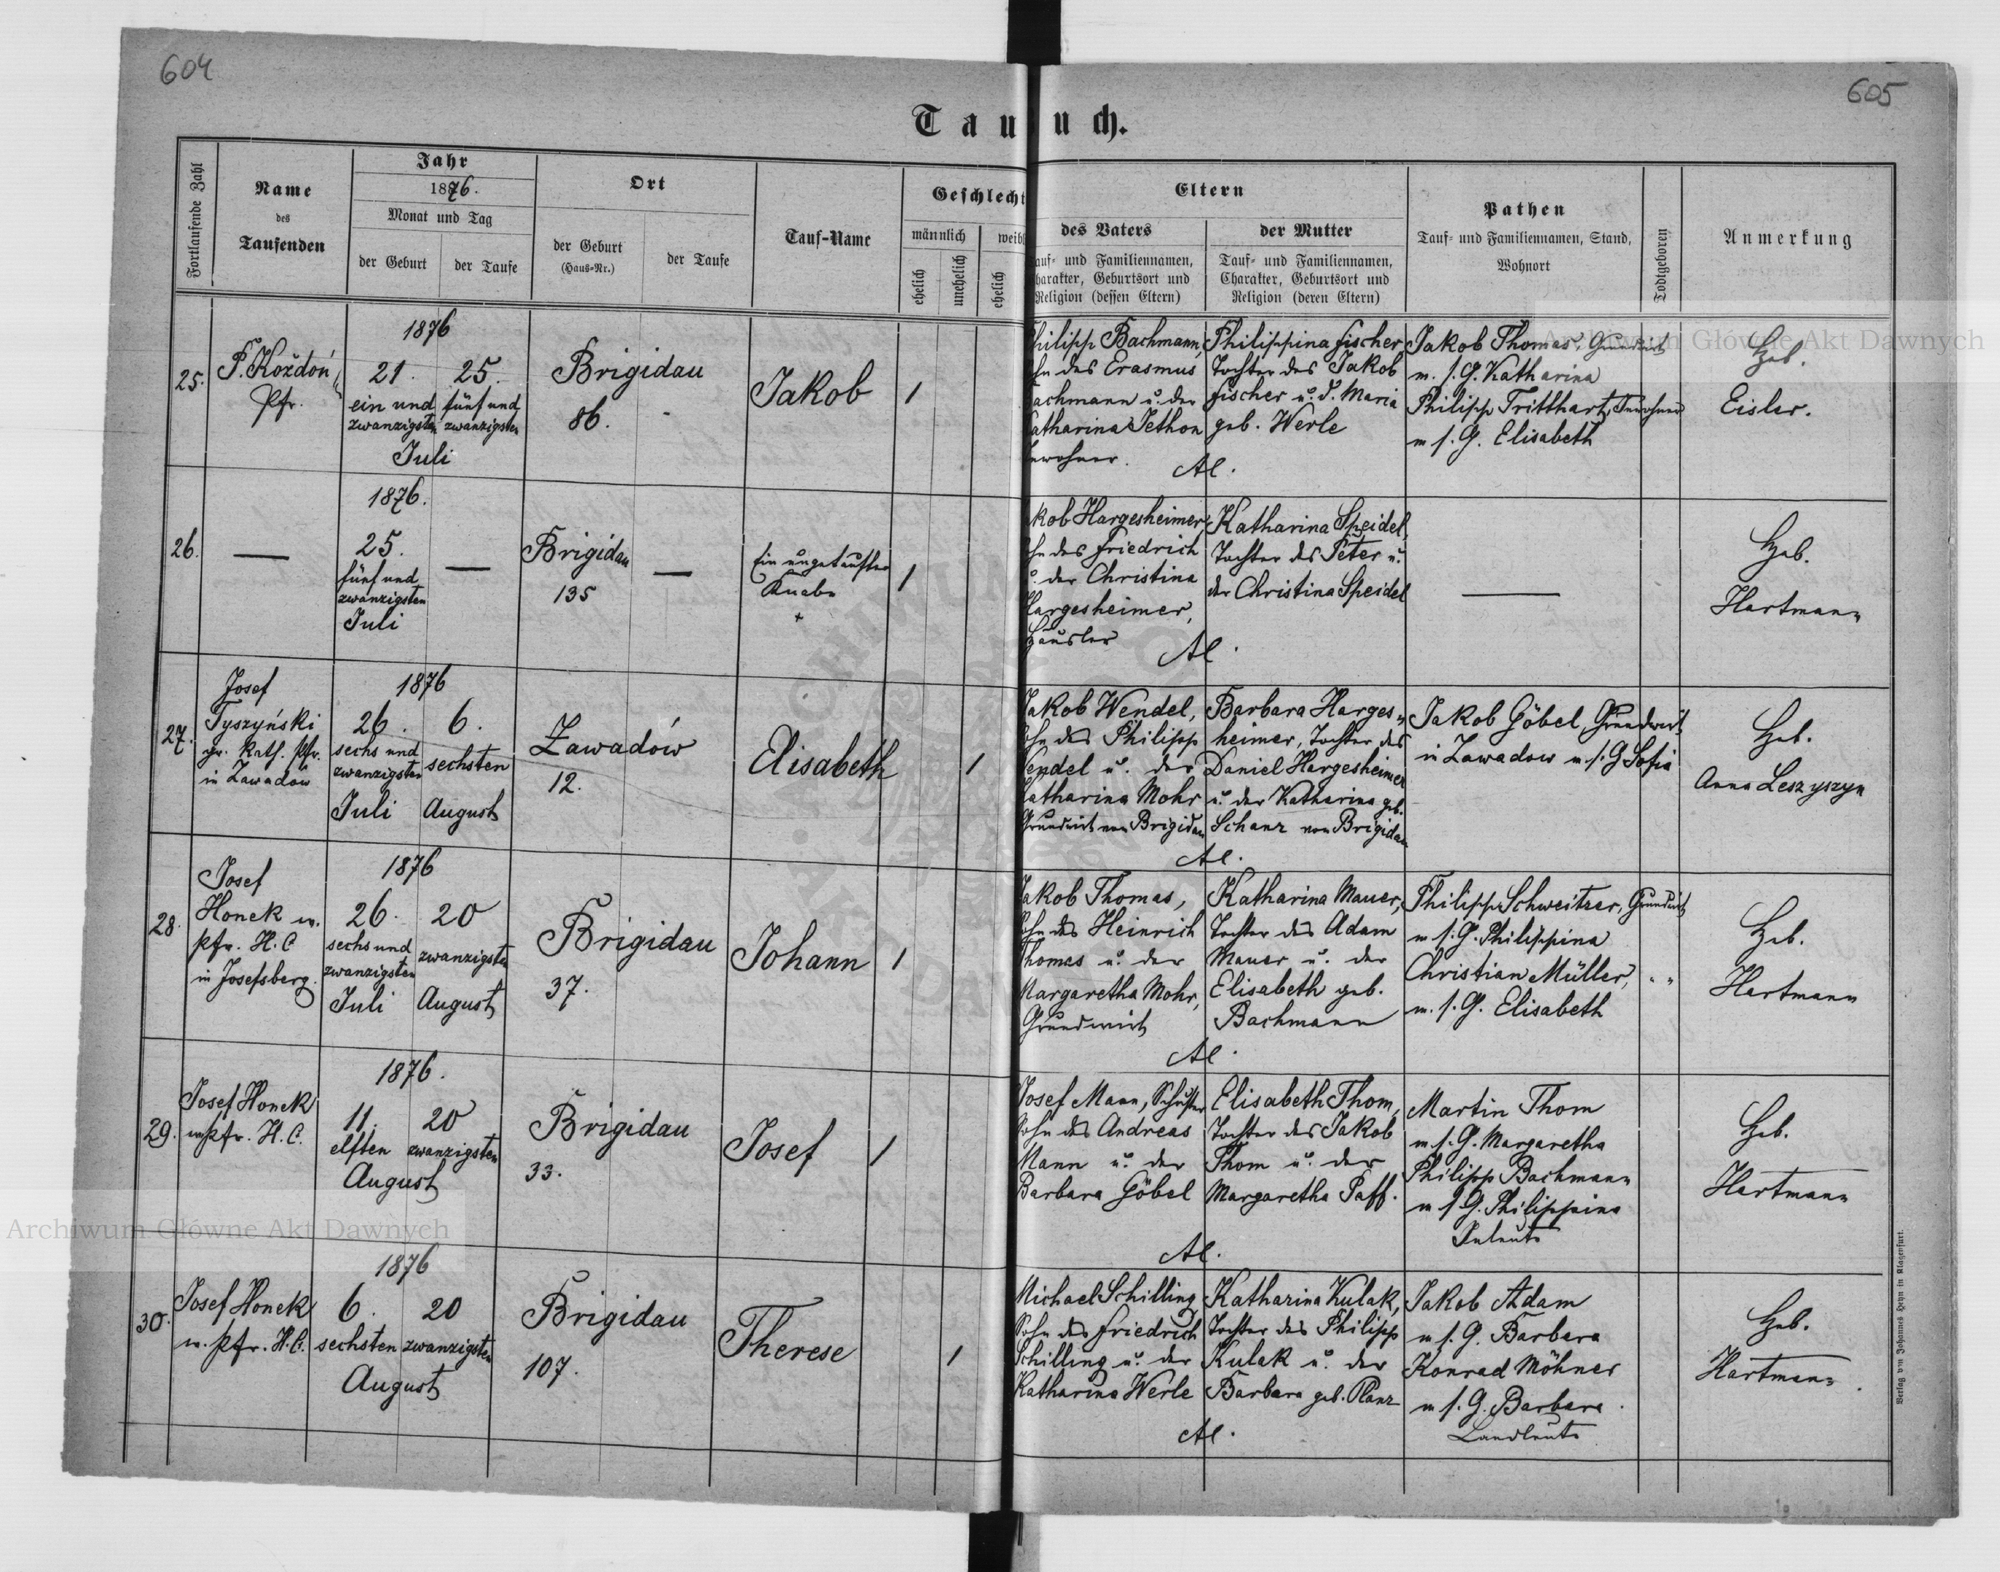 604
605
Tau uch.
Fortlaufende Zahl
Name
des
Taufenden
Jahr
1876.
Monat und Tag
der Geburt
der Taufe
Ort
der Geburt
(Haus-Nr.)
der Taufe
Tauf-Name
Geschlecht
männlich
weibl
ehelich
unehelich
ehelich
Eltern
des Vaters
auf- und Familiennamen,
harakter, Geburtsort und
Religion (dessen Eltern)
der Mutter
Tauf- und Familiennamen,
Charakter, Geburtsort und
Religion (deren Eltern)
Pathen
Tauf- und Familiennamen, Stand,
Wohnort
Todtgeboren
Anmerkung
25.
P. Koždoń
Pfr.
1876
21.
ein und
zwanzigsten
25.
fünf und
zwanzigsten
Juli
Brigidau
86.
-
Jakob
1
hilipp Bachmann,
ohn des Erasmus
achmann u. der
atharina Jethon
nwohner.
Philippina Fischer
Tochter des Jakob
Fischer u. d. Maria
geb. Werle
Al.
Jakob Thomas, Grundwirt
m. s. G. Katharina
Philipp Tritthart, Inwohner
m s. G. Elisabeth
Heb.
Eisler.
26.
—
1876.
25.
fünf und
zwanzigsten
Juli
—
Brigidau
135
—
Ein ungetaufter
Knabe
+
1
akob Hargesheimer
ohn des Friedrich
u. der Christina
Hargesheimer,
Häusler
Katharina Speidel,
Tochter des Peter u.
der Christina Speidel
Al.
—
Heb.
Hartmann
27.
Josef
Tyszyński
gr. kath. Pfr.
in Zawadow
1876
26.
sechs und
zwanzigsten
Juli
6.
sechsten
August
Zawadów
12.
Elisabeth
1
Jakob Wendel,
ohn des Philipp
Wendel u. der
Katharina Mohr
Grundwirt von Brigidau
Barbara Harges=
heimer, Tochter des
Daniel Hargesheimer
u. der Katharina geb.
Schanz von Brigidau
Al.
Jakob Göbel, Grundwirt
in Zawadow m. s. G Sofia
Heb.
Anna Leszyszyn
28.
Josef
Honek w.
Pfr. H. C
in Josefsberg.
1876
26.
sechs und
zwanzigsten
Juli
20
zwanzigsten
August
Brigidau
37.
Johann
1
Jakob Thomas,
Sohn des Heinrich
Thomas u. der
Margaretha Mohr,
Grundwirt
Katharina Mauer,
Tochter des Adam
Mauer u. der
Elisabeth geb.
Bachmann
Al.
Philipp Schweitzer, Grundwirt
m s. G. Philippina
Christian Müller, " "
m. s. G. Elisabeth
Heb.
Hartmann
29.
Josef Honek
w. Pfr. H. C.
1876.
11.
elften
20
zwanzigsten
August
Brigidau
33.
Josef
1
Josef Mann, Schuster
Sohn des Andreas
Mann u. der
Barbara Göbel
Elisabeth Thom,
Tochter des Jakob
Thom u. der
Margaretha Paff.
Al.
Martin Thom
m s. G. Margaretha
Philipp Bachmann
m s G. Philippina
Heb.
Hartmann
30.
Josef Honek
w. Pfr. H. C.
1876
6.
sechsten
20
zwanzigsten
August
Brigidau
107.
Therese
1
Michael Schilling
Sohn des Friedrich
Schilling u. der
Katharina Werle
Katharina Kulak,
Tochter des Philipp
Kulak u. der
Barbara geb. Planz
Al.
Jakob Adam
m s. G. Barbara
Konrad Möhner
m s. G. Barbara
Landleute
Heb.
Hartmann
Verlag von Johannes Heyn in Klagenfurt.
Archiwum Główne Akt Dawnych
Archiwum Główne Akt Dawnych